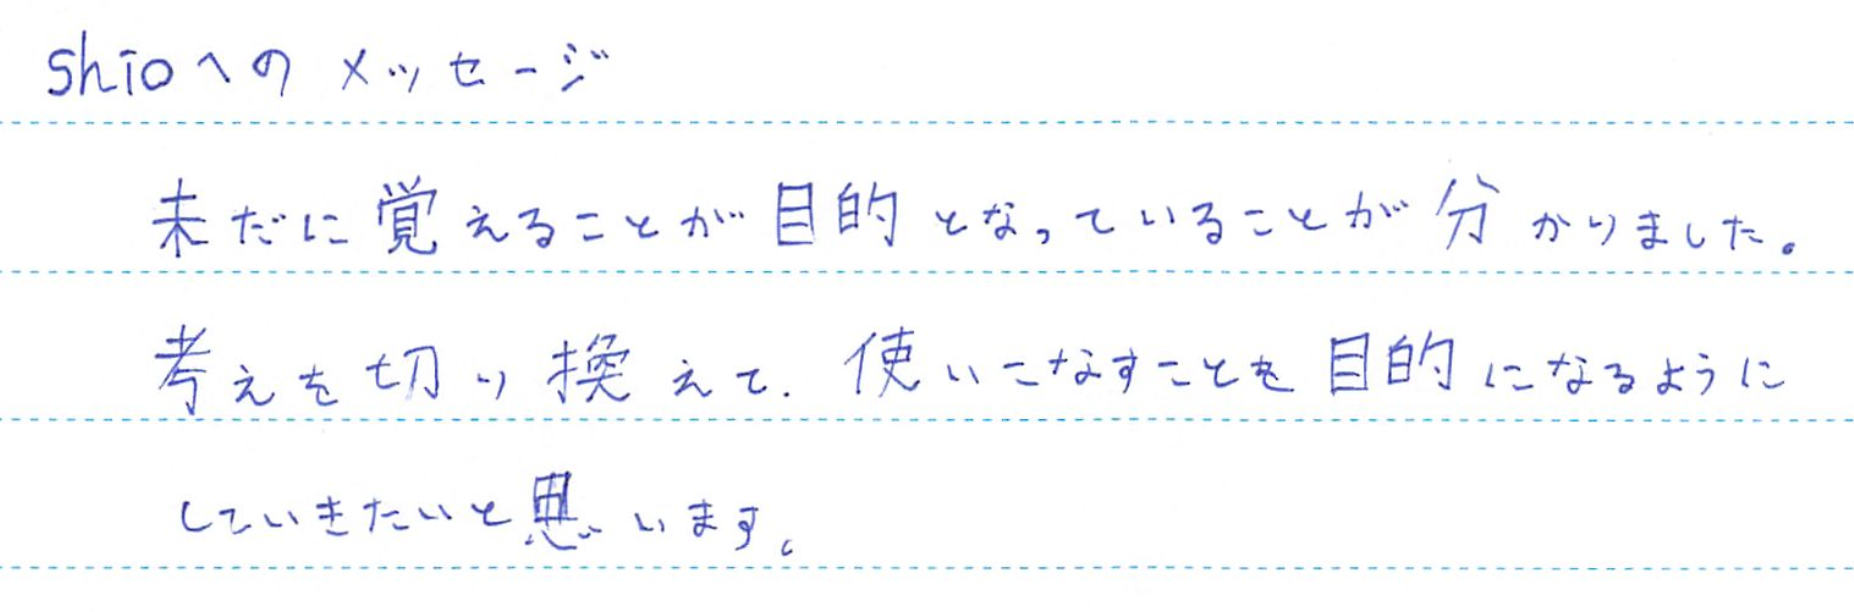 shioへのメッセージ
未だに覚えることが目的となっていることが分かりました。
考えを切り換えて、使いこなすことを目的になるように
していきたいと思います。